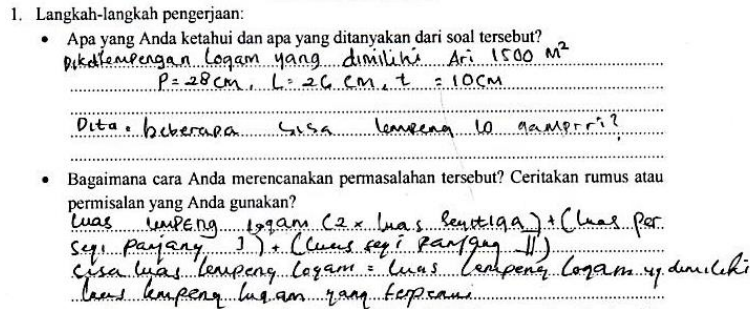 1. Langkah-langkah pengerjaan:
• Apa yang Anda ketahui dan apa yang ditanyakan dari soal tersebut?
lempengan logam yang dimiliki Ari 1500 M²
P = 28 cm, L = 26 cm, t = 10 cm
Dita : beberapa sisa lempeng 10
• Bagaimana cara Anda merencanakan permasalahan tersebut? Ceritakan rumus atau
permisalan yang Anda gunakan?
Luas lempeng logam (2 x luas segitiga) + (luas per
segi panjang I) + (luas segi panjang II)
Sisa luas lempeng logam = luas lempeng logam yg dimiliki
luas lempeng logam yang